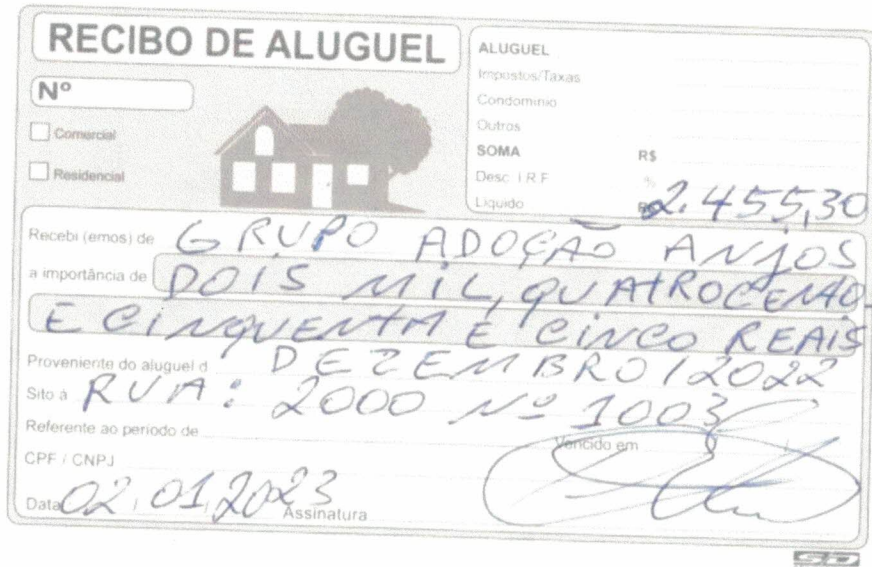 RECIBO DE ALUGUEL
Nº
Comercial
Residencial
ALUGUEL
Impostos/Taxas
Condomínio
Outros
SOMA R$
Desc. I.R.F. %
Líquido 2.455,30
Recebi (emos) de GRUPO ADOÇÃO ANJOS
a importância de DOIS MIL, QUATROCENTO
E CINQUENTA E CINCO REAIS
Proveniente do aluguel d DEZEMBRO/2022
Sito à RUA: 2000 Nº 1003
Referente ao período de
Vencido em
CPF / CNPJ
Data 02,01,2023 Assinatura
SD